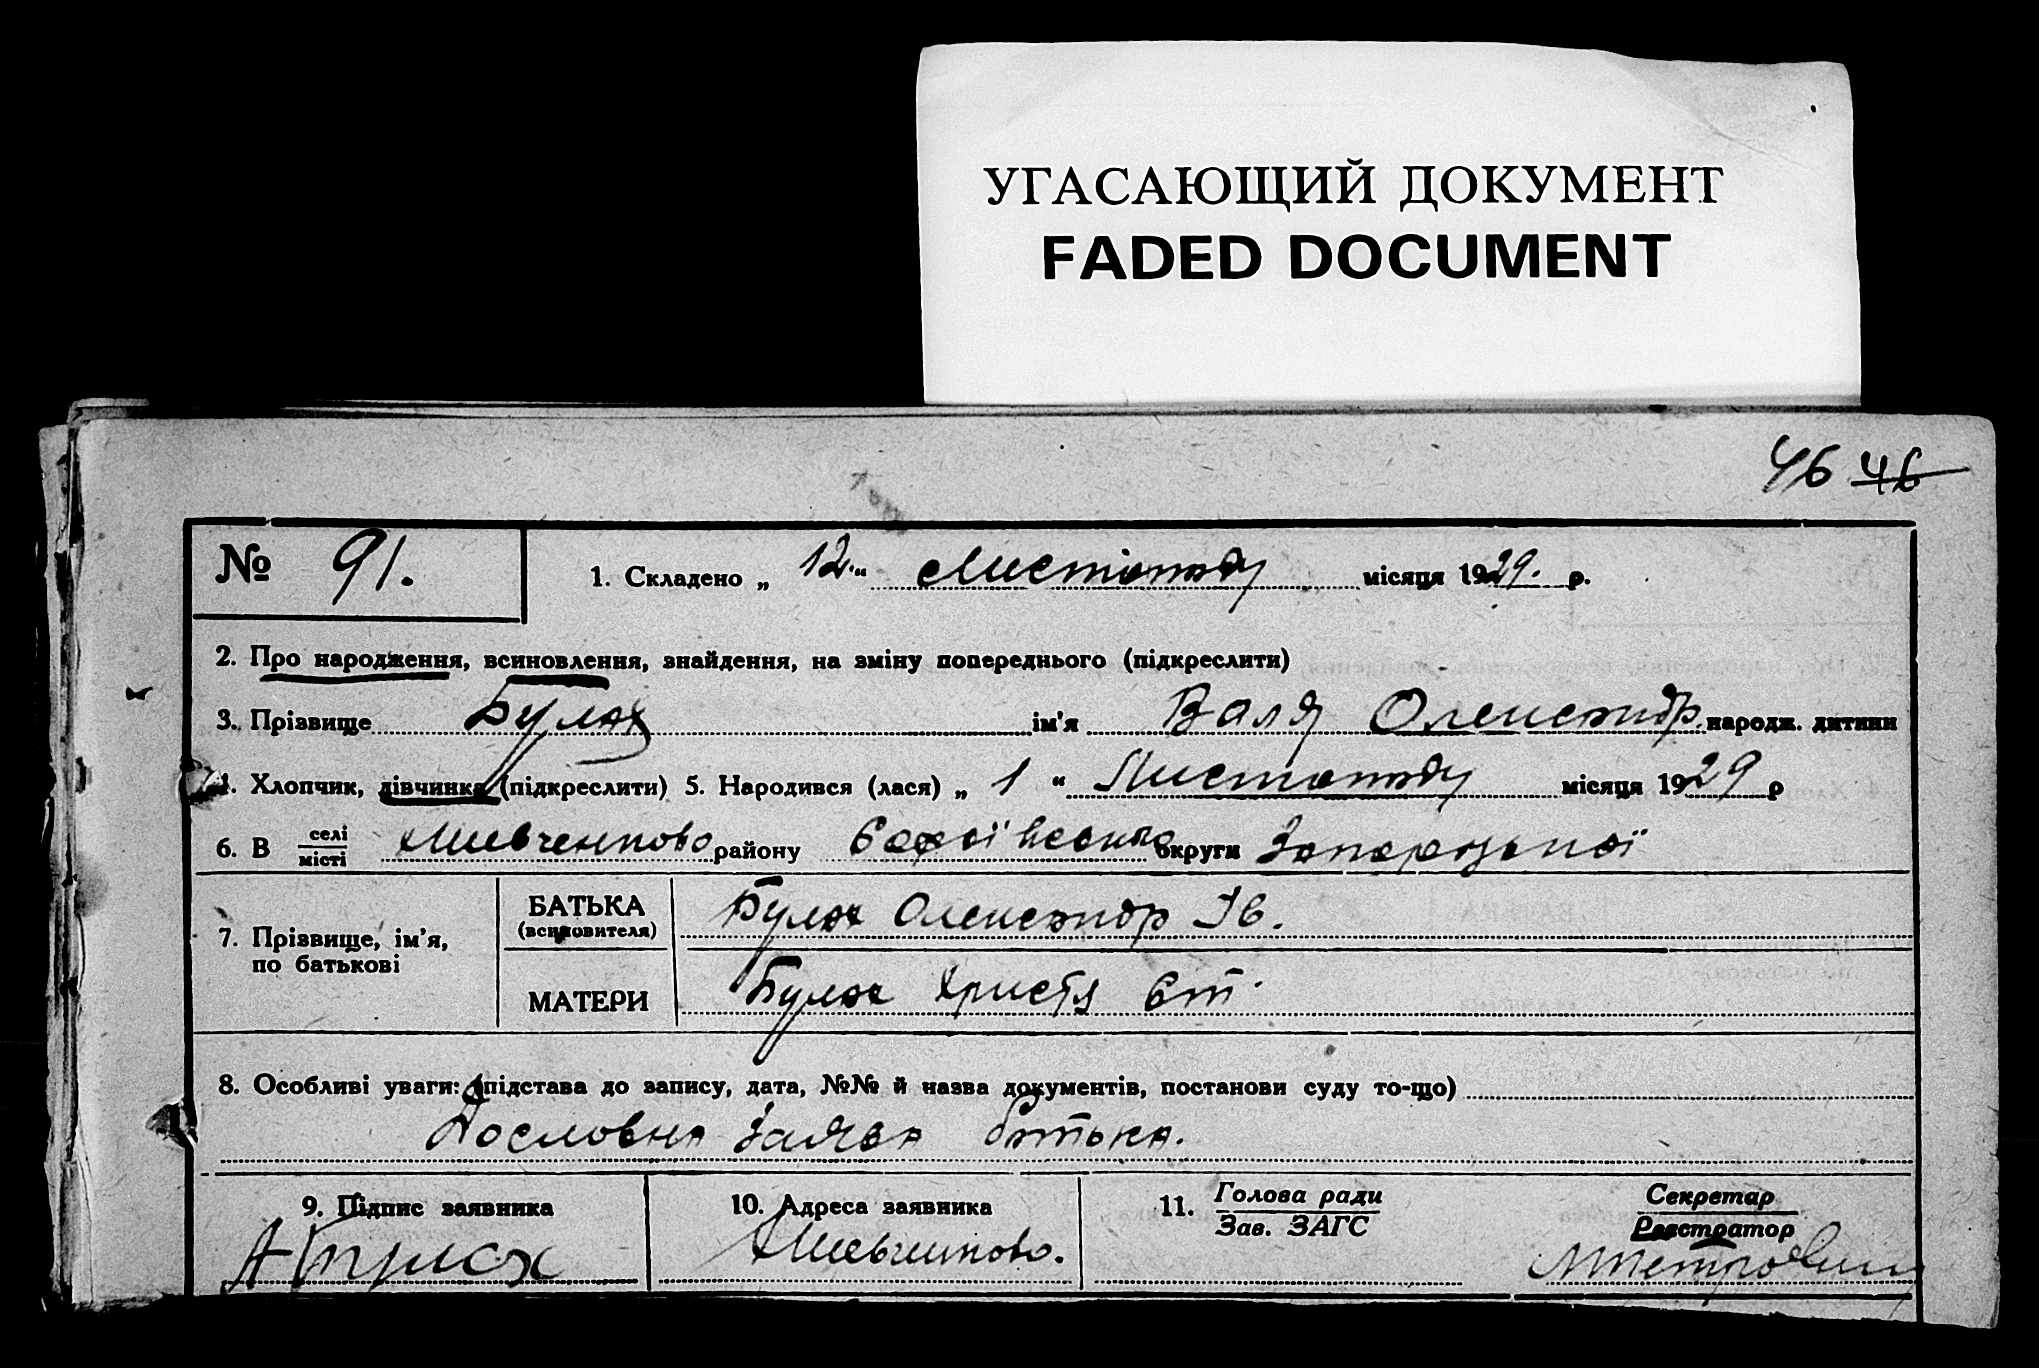 УГАСАЮЩИЙ ДОКУМЕНТ
FADED DOCUMENT
46 46
№ 91.
1. Складено „ 12 “ Листопаду місяця 1929. р.
2. Про народження, всиновлення, знайдення, на зміну попереднього (підкреслити)
3. Прізвище Булах ім’я Валя Олександр. народж. дитини
4. Хлопчик, дівчинка (підкреслити) 5. Народився (лася) „ 1 “ Листопаду місяця 1929 р
6. В селі місті Шевченково району округи Запорізької
7. Прізвище, ім’я, по батькові
БАТЬКА (всиновителя) Булах Олександр Ів.
МАТЕРИ Булах Христя Єт.
8. Особливі уваги: (підстава до запису, дата, №№ й назва документів, постанови суду то-що)
Дословна заява батька.
9. Підпис заявника
10. Адреса заявника
11. Голова ради Зав. ЗАГС
Секретар Реєстратор
АБулах
Шевченково.
МПетрович